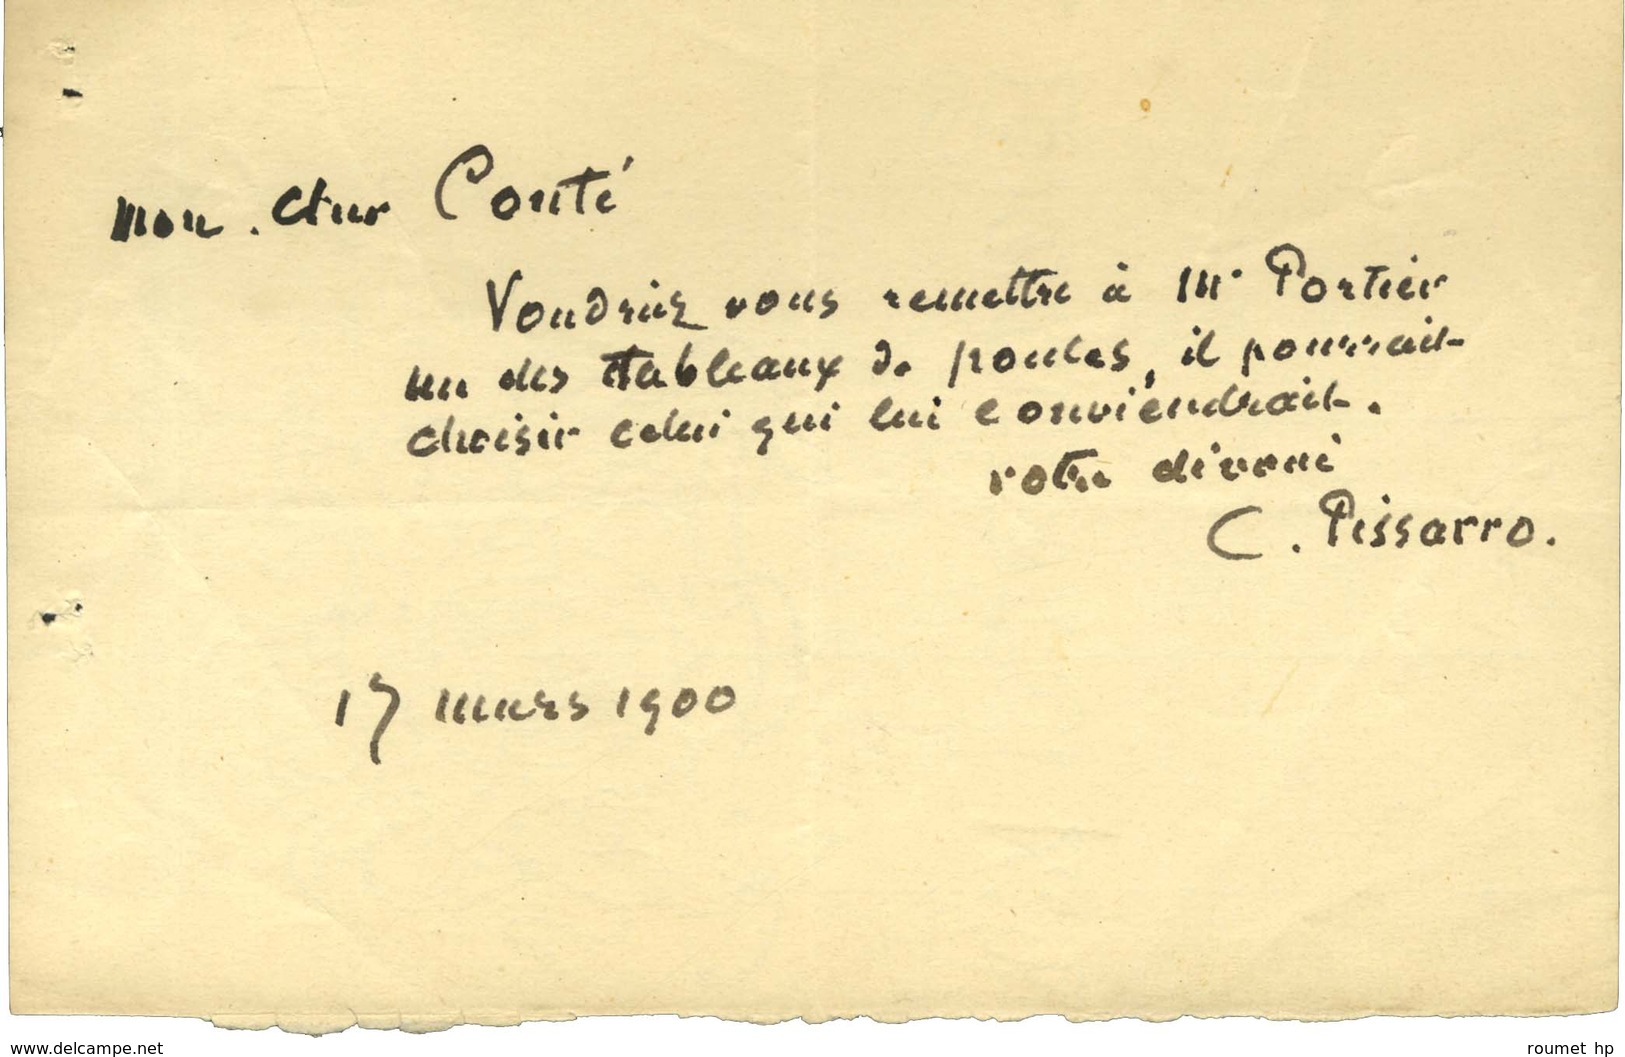 Mon. cher Conté
Voudriez vous remettre à Mr Portier
un des tableaux de poules, il pourrait
choisir celui qui lui conviendrait.
votre dévoué
C. Pissarro.
17 mars 1900
www.delcampe.net
roumet hp